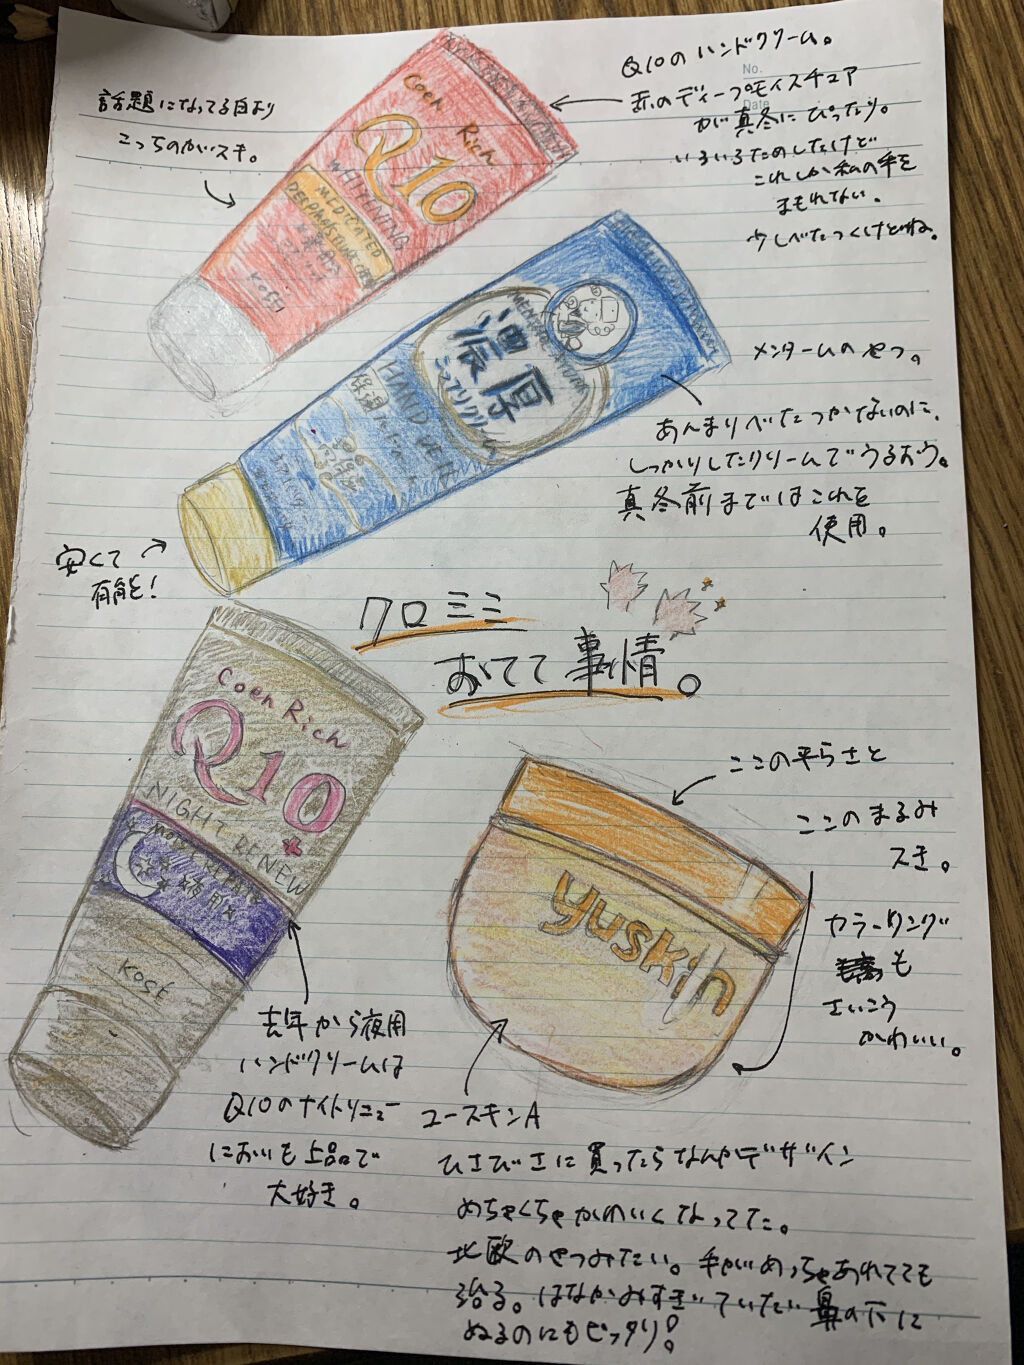 Q10のハンドクリーム。
赤のディープモイスチュア
が真冬にぴったり。
いろいろためしたけど
これしか私の手を
まもれない。
少しべたつくけどね。
No.
Date
話題になってる白より
こっちのがスキ。
Coen Rich
Q10
WHITENING
MEDICATED
KOSE
メンタームのやつ。
あんまりべたつかないのに、
しっかりしたクリームでうるおう。
真冬前まではこれを
使用。
濃厚
HAND VEIL
安くて
有能!
クロミミ
おてて事情。
Coen Rich
Q10
NIGHT RENEW
MOIST REPAIR
夜用
KOSE
去年から夜用
ハンドクリームは
Q10のナイトリニュー
においも上品で
大好き。
ここの平らさと
ここのまるみ
スキ。
カラーリング
も
さいこう
かわいい。
yuskin
ユースキンA
ひさびさに買ったらなんかデザイン
めちゃくちゃかわいくなってた。
北欧のやつみたい。手がめっちゃあれてても
治る。はなかみすぎていたい鼻の下に
ぬるのにもピッタリ!